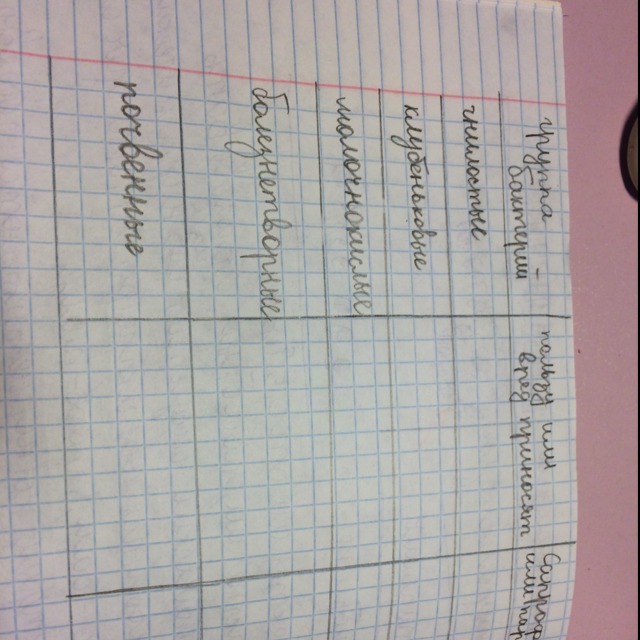 группа
бактерий -
пользу или
вред приносят
гнилостные
клубеньковые
молочнокислые
болезнетворные
почвенные